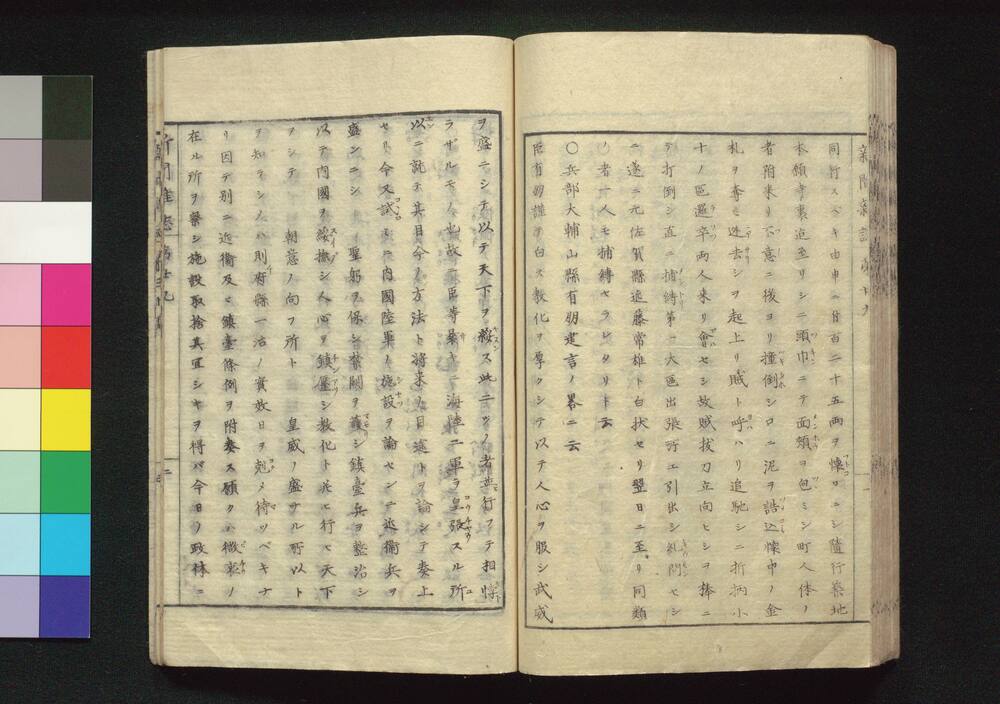 同行スベキ由申ヘ廿百二十五両ヲ懐ロニシ隨行築地
本願寺裏迄至リシニ頭巾ニテ面頬ヲ包ミシ町人体ノ
者附来リ不意ニ後ヨリ撞倒シ口ニ泥ヲ詰込懐中ノ金
札ヲ奪ヒ迯去シヲ起上リ賊ト呼ハリ追馳シニ折柄小
十ノ區邏卒両人来リ會セシ故賊抜刀立向ヒシヲ捧ニ
テ打倒シ直ニ捕縛第一大區出張所エ引出シ糺問セシ
ニ遂ニ元佐賀縣遠藤常雄ト白状セリ翌日ニ至リ同類
ノ者一人モ捕縛セラレタリト云
〇兵部大輔山縣有朋建言ノ畧ニ云
臣有朋謹テ白ス教化ヲ厚クシテ以テ人心ヲ服シ武威
ヲ盛ニシテ以テ天下ヲ綏ス此二ツノ者並行フテ相悖
ラザルモノ也故ニ臣等曩キニ海陸二軍ヲ皇張スル所
以ニ託テ其目今ノ方法ト將来ノ目途トヲ論シテ奏上
セリ今又試ミニ内國陸軍ノ施設ヲ論センニ近衞兵ヲ
盛ンニシ 聖躬ヲ保シ禁闕ヲ護シ鎮臺兵ヲ整治シ
以テ内國ヲ綏撫シ人心ヲ鎮壓シ教化ト共ニ行ヒ天下
ヲシテ 朝意ノ向フ所ト 皇威ノ盛ナル所以ト
ヲ知ラシメハ則府縣一治ノ實效日ヲ剋メ待ツベキナ
リ因テ別ニ近衞及ヒ鎮臺條例ヲ附奏ス願クハ微衷ノ
在ル所ヲ察シ施設取捨其宜シキヲ得バ今日ノ政体ニ